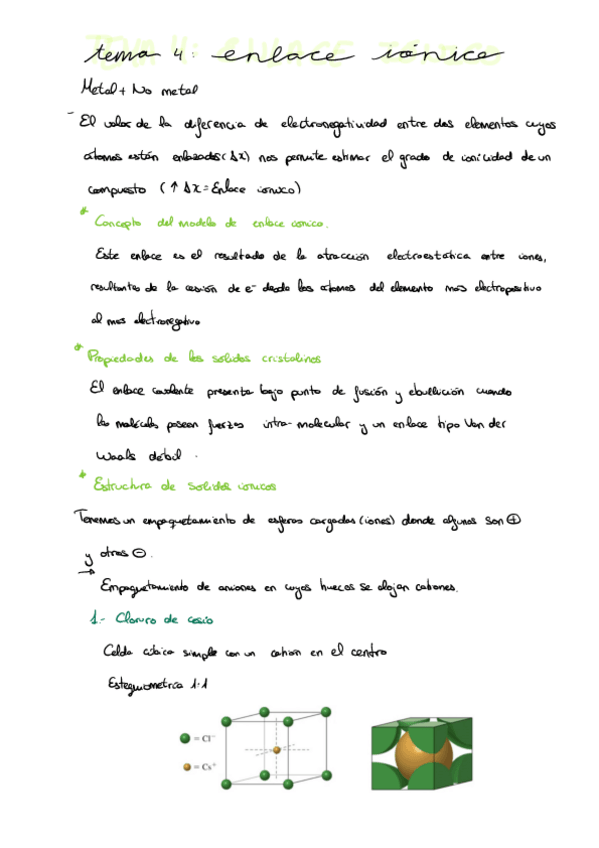 tema 4: enlace iónico
Metal + No metal
- El valor de la diferencia de electronegatividad entre dos elementos cuyos
átomos están enlazados (Δx) nos permite estimar el grado de ionicidad de un
compuesto (↑ Δx = Enlace iónico)
* Concepto del modelo de enlace iónico.
Este enlace es el resultado de la atracción electroestática entre iones,
resultantes de la cesión de e- desde los átomos del elemento mas electropositivo
al mas electronegativo
* Propiedades de los solidos cristalinos
El enlace covalente presenta bajo punto de fusión y ebullición cuando
las moléculas posean fuerzas intra-molecular y un enlace tipo Van der
Waals débil.
* Estructura de solidos iónicos
Tenemos un empaquetamiento de esferas cargadas (iones) donde algunos son ⊕
y otros ⊖.
→ Empaquetamiento de aniones en cuyos huecos se alojan cationes.
1.- Cloruro de cesio
Celda cúbica simple con un cation en el centro
Estequiometría 1:1
= Cl⁻
= Cs⁺